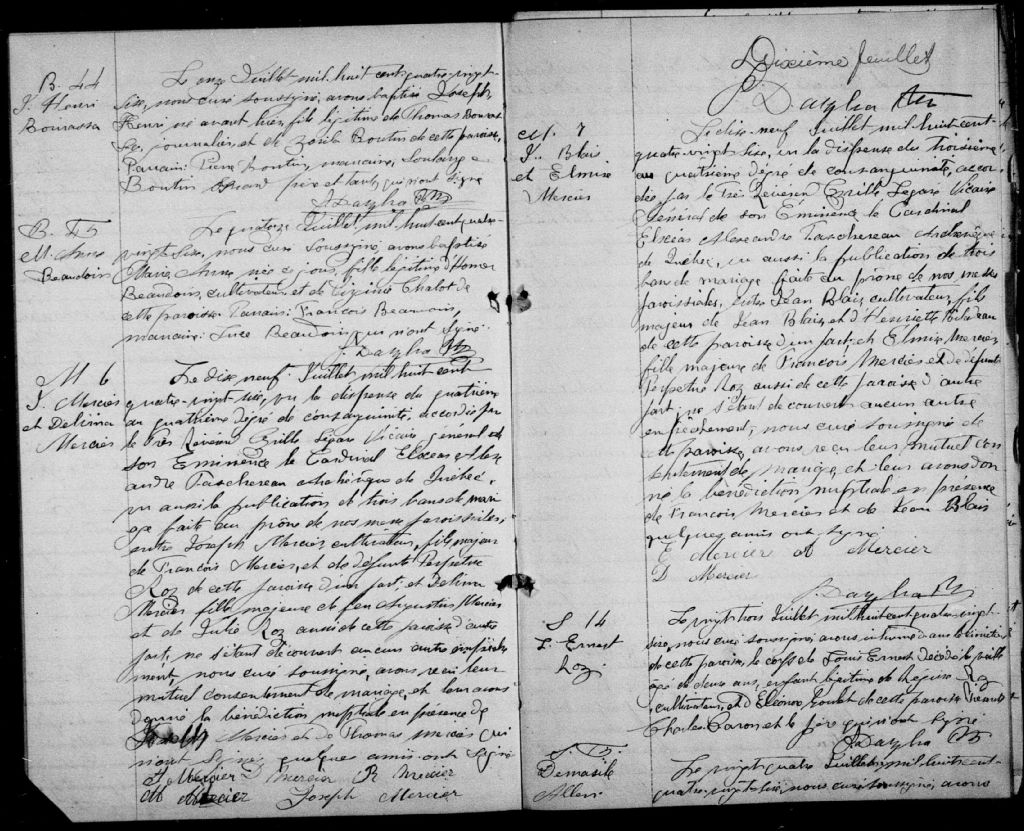 B. 44
J. Henri
Bourrassa
Le onze Juillet mil huit cent quatre-vingt-
sise, nous curé soussigné, avons baptisé Joseph,
Henri né avant hier, fils légitime de Thomas Bourras-
sa, journalier, et de Zoïle Boutin de cette paroisse,
Parrain Pierre Boutin, marraine, Soulange
Boutin qui n'ont signé
J. Dayha Ptr
B. 45
M. Anna
Beaudoin
Le quatorze Juillet mil huit cent quatre-
vingt sise, nous curé soussigné, avons baptisé
Marie, Anna née ce jour, fille légitime d'Homer
Beaudoin, cultivateur, et de Chabot de
cette paroisse. Parrain: François Beaudoin,
marraine: Luce Beaudoin, qui n'ont signé.
J. Dayha Ptr
M 6
J. Mercier
et Delima
Mercier
Le dise neuf Juillet mil huit cent
quatre-vingt sise, vu la dispense du quatrième
au quatrième dégré de consanguinité, accordée par
le Très Révérend Cyrille Légaré Vicaire général de
son Éminence le Cardinal Elzéas Alex-
andre Taschereau archévêque de Québec,
vu aussi la publication de trois bans de maria-
ge faite au prône de nos messes paroissiales,
entre Joseph Mercier cultivateur, fils majeur
de François Mercier, et de défunte Perpétue
Roz de cette paroisse d'un part, et Delima
Mercier fille majeure de feu Augustin Mercier
et de Julie Roz aussi de cette paroisse d'autre
part, ne s'étant découvert aucun autre empêche-
ment, nous curé soussigné, avons reçu leur
mutuel consentement de mariage, et leur avons
donné la bénédiction nuptiale en présence de
Joseph Mercier et de Thomas Mercier qui
n'ont signé quelques amis ont signé
A Mercier D Mercier R Mercier
M Mercier Joseph Mercier
Dixième feuillet
J. Dayha Ptr
M. 7
J. Blais
et Elmire
Mercier
Le dise-neuf Juillet mil huit cent-
quatre-vingt sise, vu la dispense du troisième
au quatrième dégré de consanguinité, accor-
dée par le Très Révérend Cyrille Légaré Vicaire
Général de son Éminence le Cardinal
Elzéas Alexandre Taschereau Archevêque
de Québec, vu aussi la publication de trois
bans de mariage faite au prône de nos messes
paroissiales, entre Jean Blais, cultivateur, fils
majeur de Jean Blais, et d'Henriette Bilodeau
de cette paroisse d'un part, et Elmire Mercier,
fille majeure de François Mercier et de défunte
Perpétue Roz aussi de cette paroisse d'autre
part, ne s'étant découvert aucun autre
empêchement, nous curé soussigné de
cette paroisse, avons reçu leur mutuel con-
sentement de mariage, et leur avons don-
né la bénédiction nuptiale en présence
de François Mercier et de Jean Blais
quelques amis ont signé
E Mercier A Mercier
D Mercier
J Dayha Ptr
S 14
L. Ernest
Roz
Le vingt trois Juillet mil huit cent quatre-vingt
sise, nous curé soussigné, avons inhumé dans le cimetière
de cette paroisse, le corps de Louis Ernest décédé la veille
âgé de deux ans, enfant légitime de Roz
cultivateur, et d'Eléonor Goulet de cette paroisse
Charles Caron et le père qui n'ont signé
J Dayha Ptr
S. 15
Allen
Le vingt quatre Juillet mil huit cent-
quatre-vingt-sise, nous curé soussigné, avons